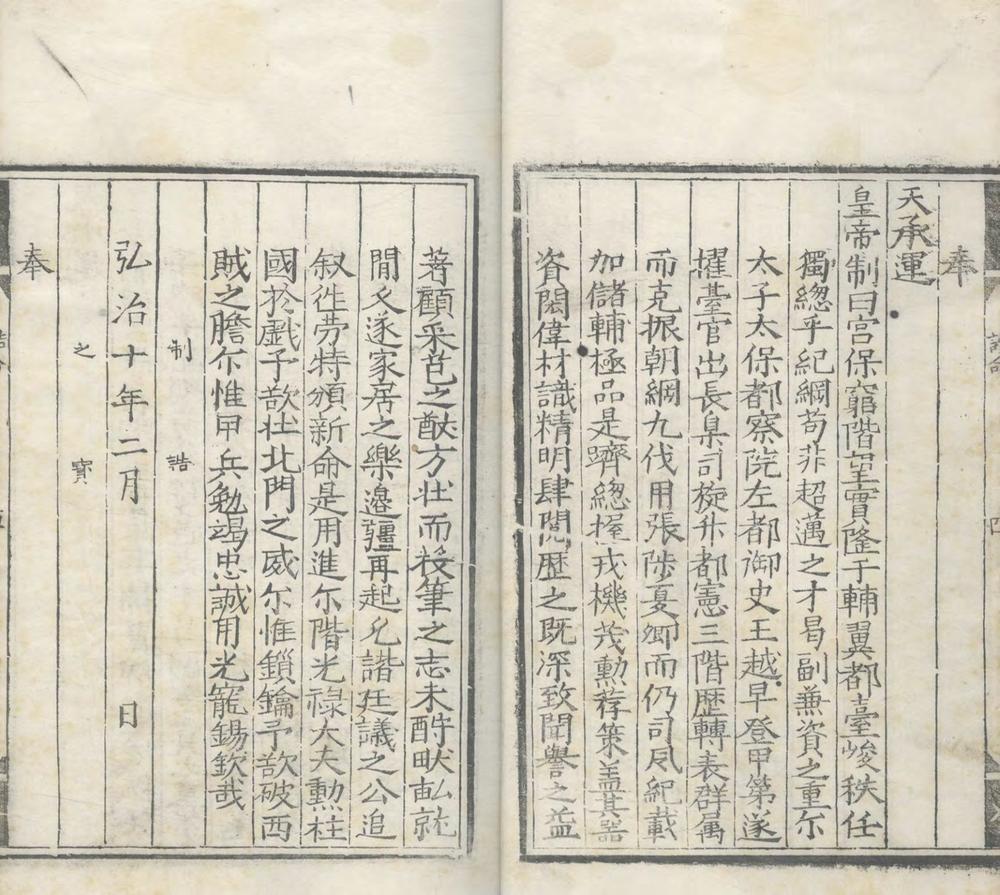 奉
天承運
皇帝制曰宫保窮階望實隆于輔翼都臺峻秩任
獨總乎紀綱苟非超邁之才曷副兼資之重尔
太子太保都察院左都御史王越早登甲第遂
擢臺官出長臬司旋升都憲三階歷轉表群属
而克振朝綱九伐用張陟夏卿而仍司风紀載
加儲輔極品是躋總握戎機茂勳荐策盖其器
資閎偉材識精明肆閱歷之既深致聞譽之益
著顧采芑之猷方壮而投筆之志未酧畎畒就
閒久遂家居之樂邉疆再起允諧廷議之公追
叙徃劳特頒新命是用進尔階光禄大夫勲柱
國於戲予欲壮北門之威尔惟鎖鑰予欲破西
賊之膽尔惟甲兵勉竭忠誠用光寵錫欽哉
制誥
弘治十年二月日
之寳
奉
四